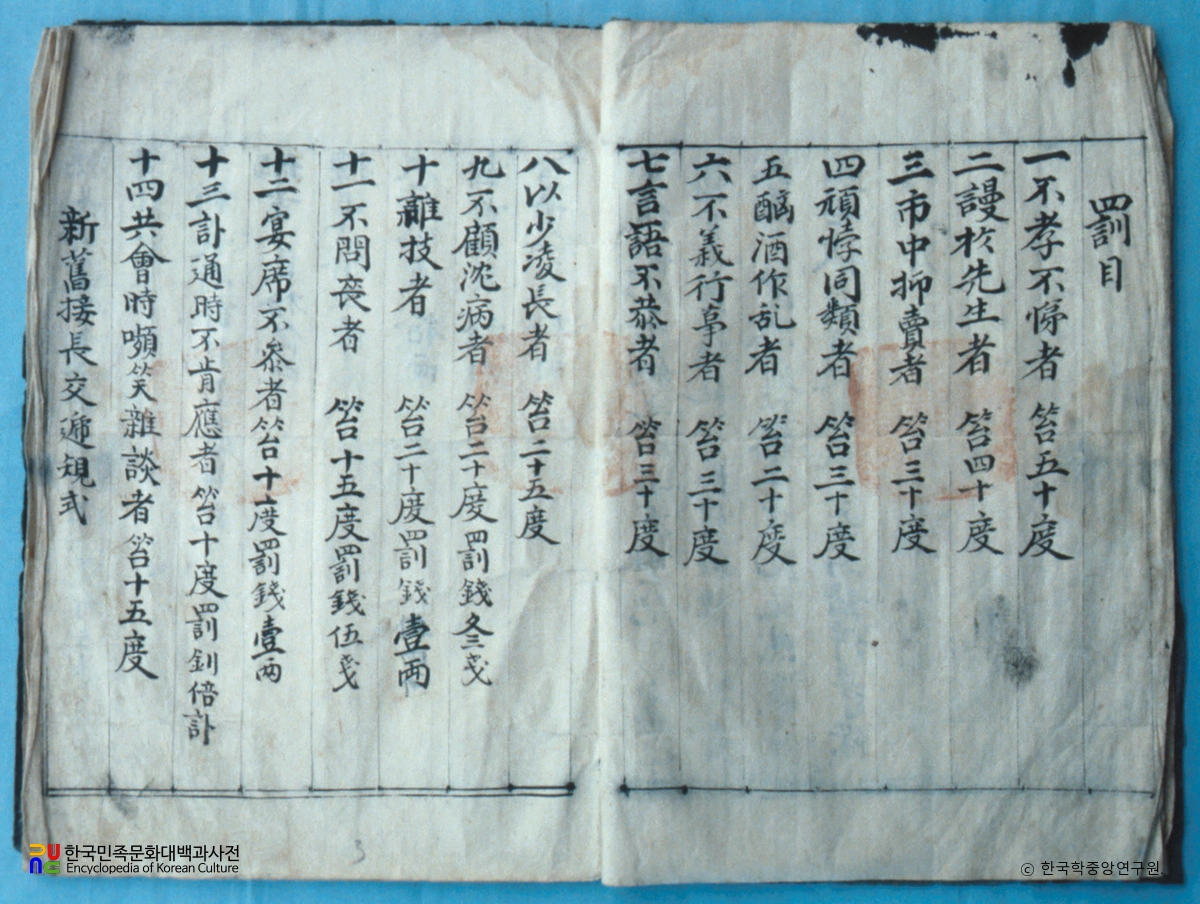 罰目
一不孝不悌者 笞五十度
二謾於先生者 笞四十度
三市中抑賣者 笞三十度
四頑悖同類者 笞三十度
五酗酒作乱者 笞二十度
六不義行事者 笞三十度
七言語不恭者 笞三十度
八以少凌長者 笞二十五度
九不顧沈病者 笞二十度罰錢參戔
十雜技者 笞二十度罰錢壹兩
十一不問喪者 笞十五度罰錢伍戔
十二宴席不叅者笞十度罰錢壹兩
十三訃通時不肯應者笞十度罰釗倍訃
十四共會時嚬笑雜談者笞十五度
新舊接長交遞規式
3
한국민족문화대백과사전
Encyclopedia of Korean Culture
© 한국학중앙연구원